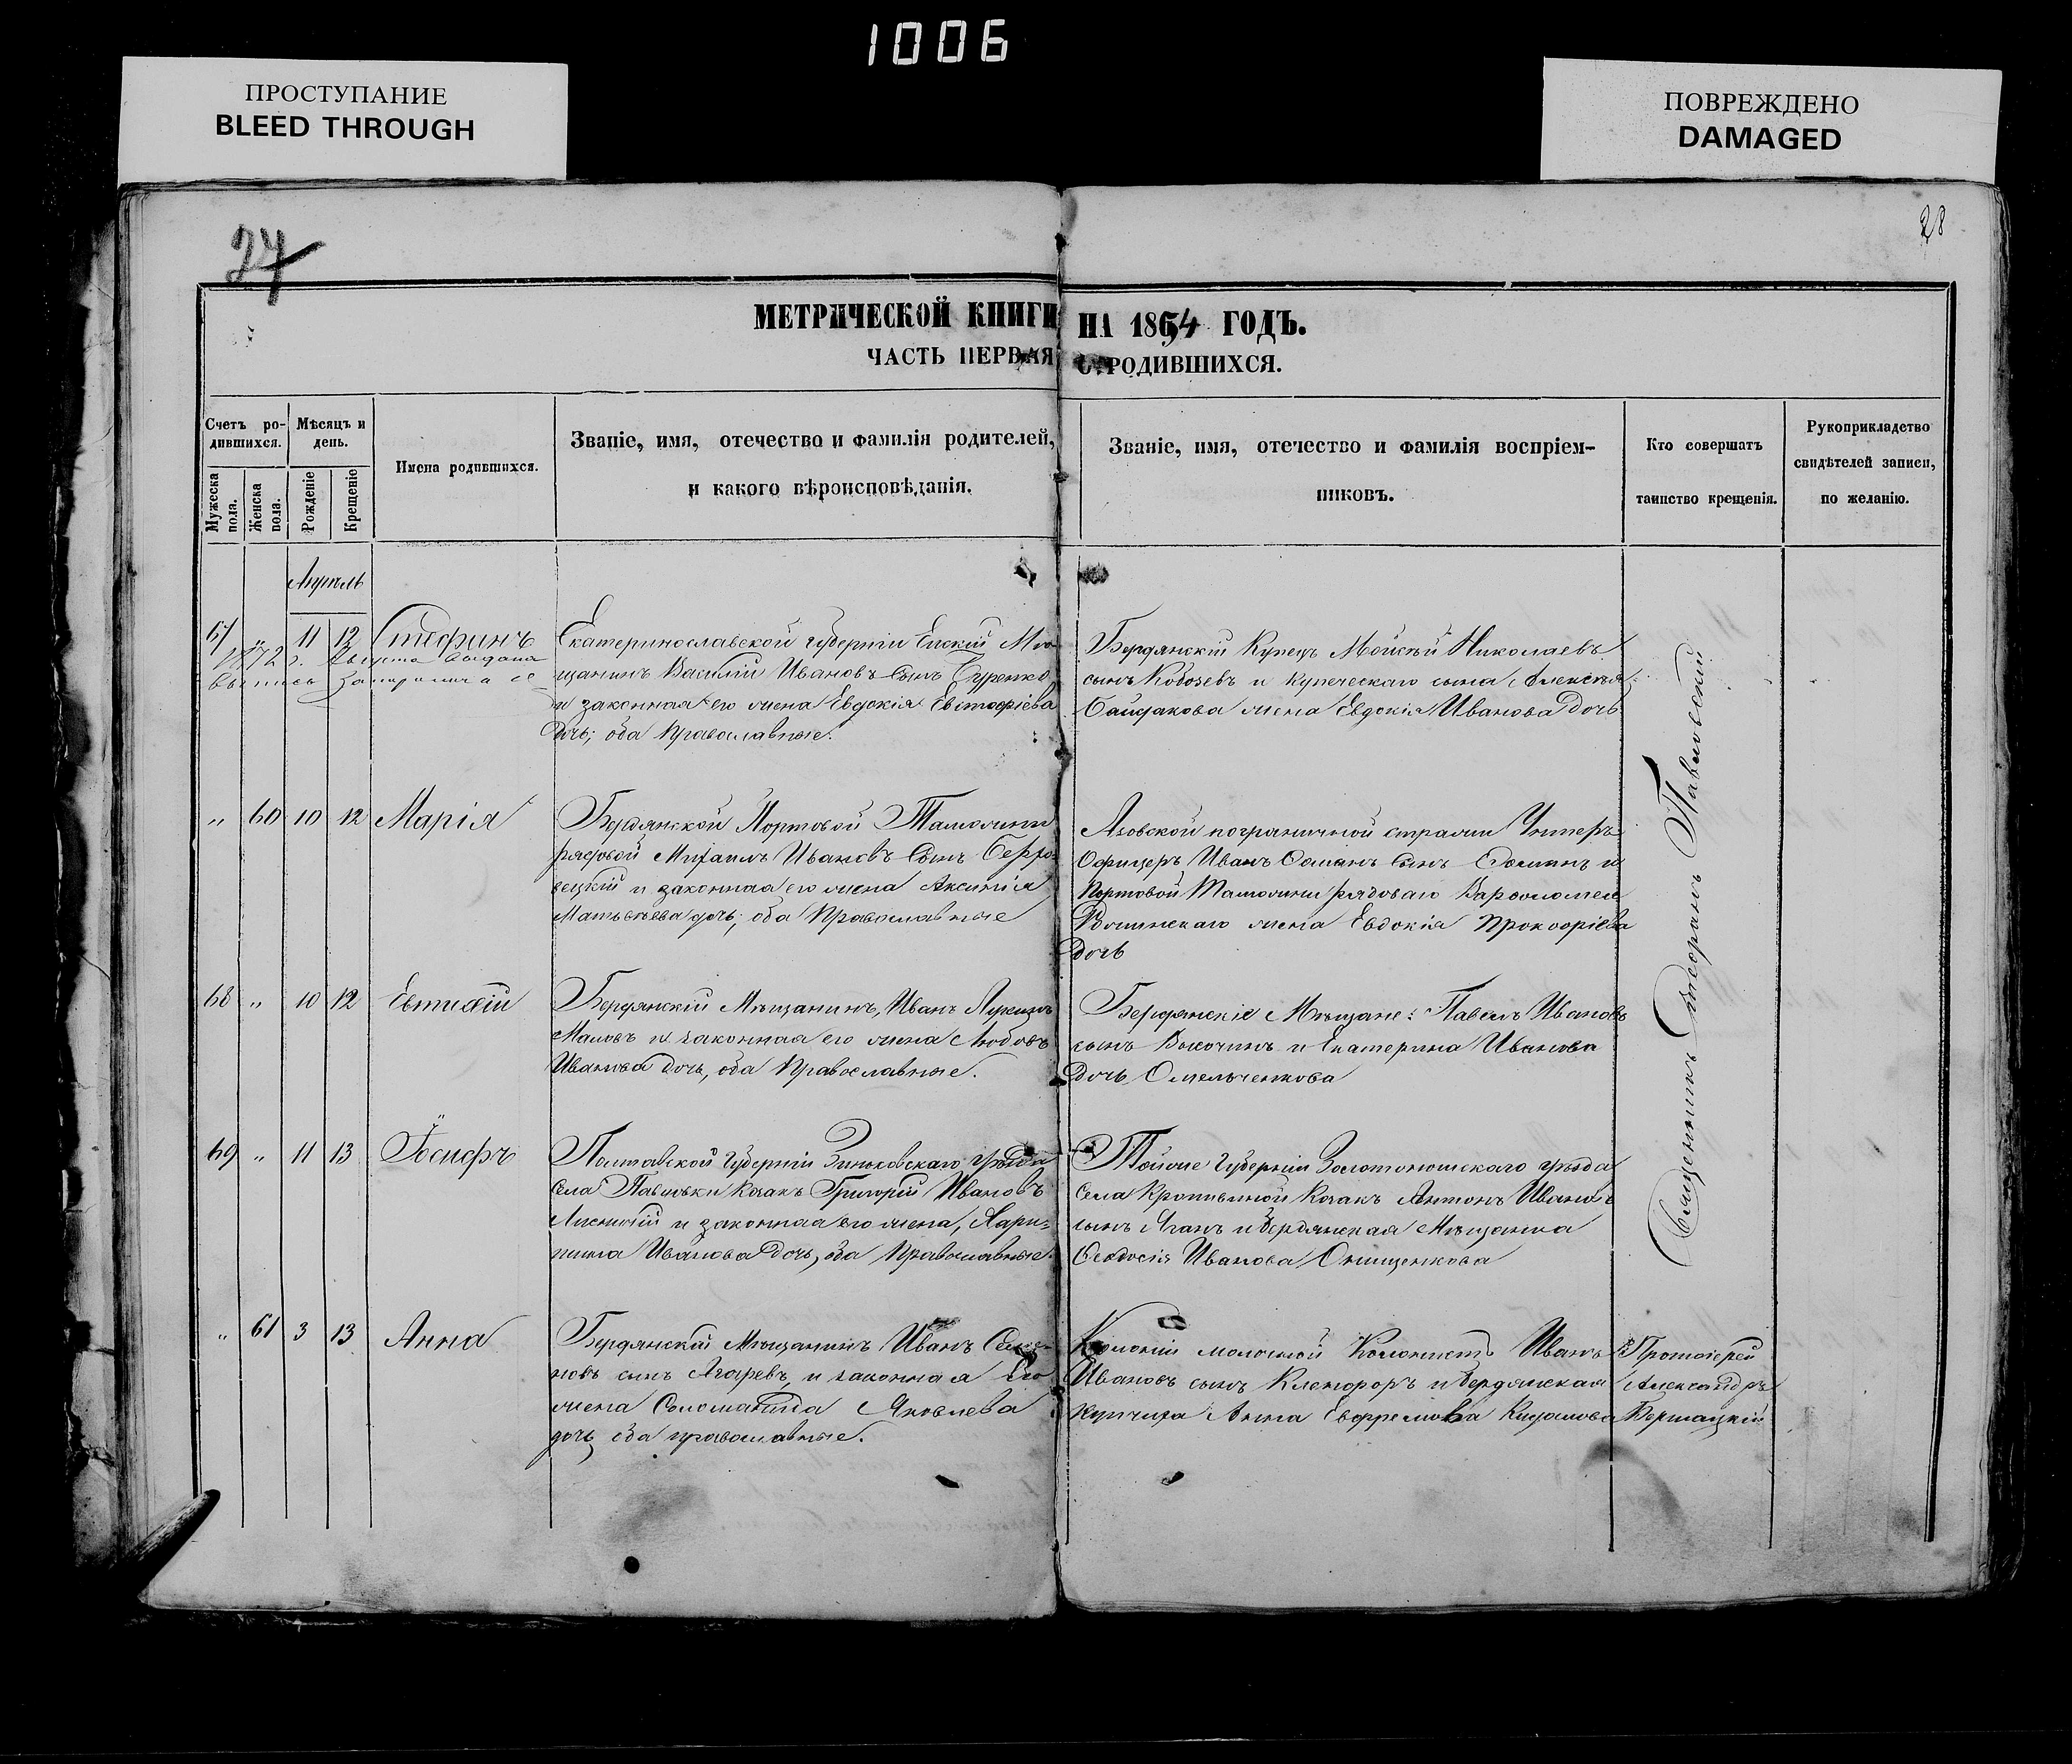 1006
ПРОСТУПАНИЕ
BLEED THROUGH
ПОВРЕЖДЕНО
DAMAGED
27
28
МЕТРИЧЕСКОЙ КНИГИ НА 1864 ГОДЪ.
ЧАСТЬ ПЕРВАЯ О РОДИВШИХСЯ.
Счетъ ро-
дившихся.
Мужеска
пола.
Женска
пола.
Мѣсяцъ и
день.
Рожденіе
Крещеніе
Имена родившихся.
Званіе, имя, отечество и фамилія родителей,
и какого вѣроисповѣданія.
Званіе, имя, отечество и фамилія воспріем-
никовъ.
Кто совершатъ
таинство крещенія.
Рукоприкладство
свидѣтелей записи,
по желанію.
Апрѣль
67 " 11 12 Стефанъ
1872 г. Августа выдана
выпись
Екатеринославской Губерніи Ейскій Мѣ-
щанинъ Василій Ивановъ Сынъ
и законная его жена Евдокія
Дочь; оба Православные.
Бердянскій Купецъ Мойсей Николаевъ
сынъ Кобозевъ и купеческаго сына Алексѣя
Байдакова жена Евдокія Иванова Дочь
" 60 10 12 Марія
Бердянской Портовой Таможни
рядовой Михаилъ Ивановъ Сынъ
вецкій и законная его жена Аксинія
Матвѣева дочь; оба Православные
Азовской пограничной стражи Унтеръ
Офицеръ Иванъ сынъ и
Портовой Таможни рядоваго Варфоломея
жена Евдокія Прокофіева
Дочь
68 " 10 12 Евтихій
Бердянскій Мѣщанинъ, Иванъ
Маловъ и законная его жена Любовь
Иванова Дочь, оба Православные.
Бердянскіе Мѣщане: Павелъ Ивановъ
сынъ Высочинъ и Екатерина Иванова
Дочь Омельченкова
69 " 11 13 Іосифъ
Полтавской Губерніи Зиньковскаго уѣзда
Села Павловки Козакъ Григорій Ивановъ
и законная его жена,
Иванова Дочь, оба Православные.
Тойже Губерніи Золотоношскаго уѣзда
Села Кропивной Козакъ Антонъ Ивановъ
сынъ и Бердянская Мѣщанка
Ѳеодосія Иванова Онищенкова
Священникъ Стефанъ Павловскій
" 61 3 13 Анна
Бердянскій Мѣщанинъ Иванъ Семе-
новъ сынъ Агаревъ, и законная Его
жена Соломанида Яковлева
дочь оба православные.
Колоніи молочной Колонистъ Иванъ
Ивановъ сынъ и Бердянская
купчиха Анна Евфремова
Протоіерей
Александръ